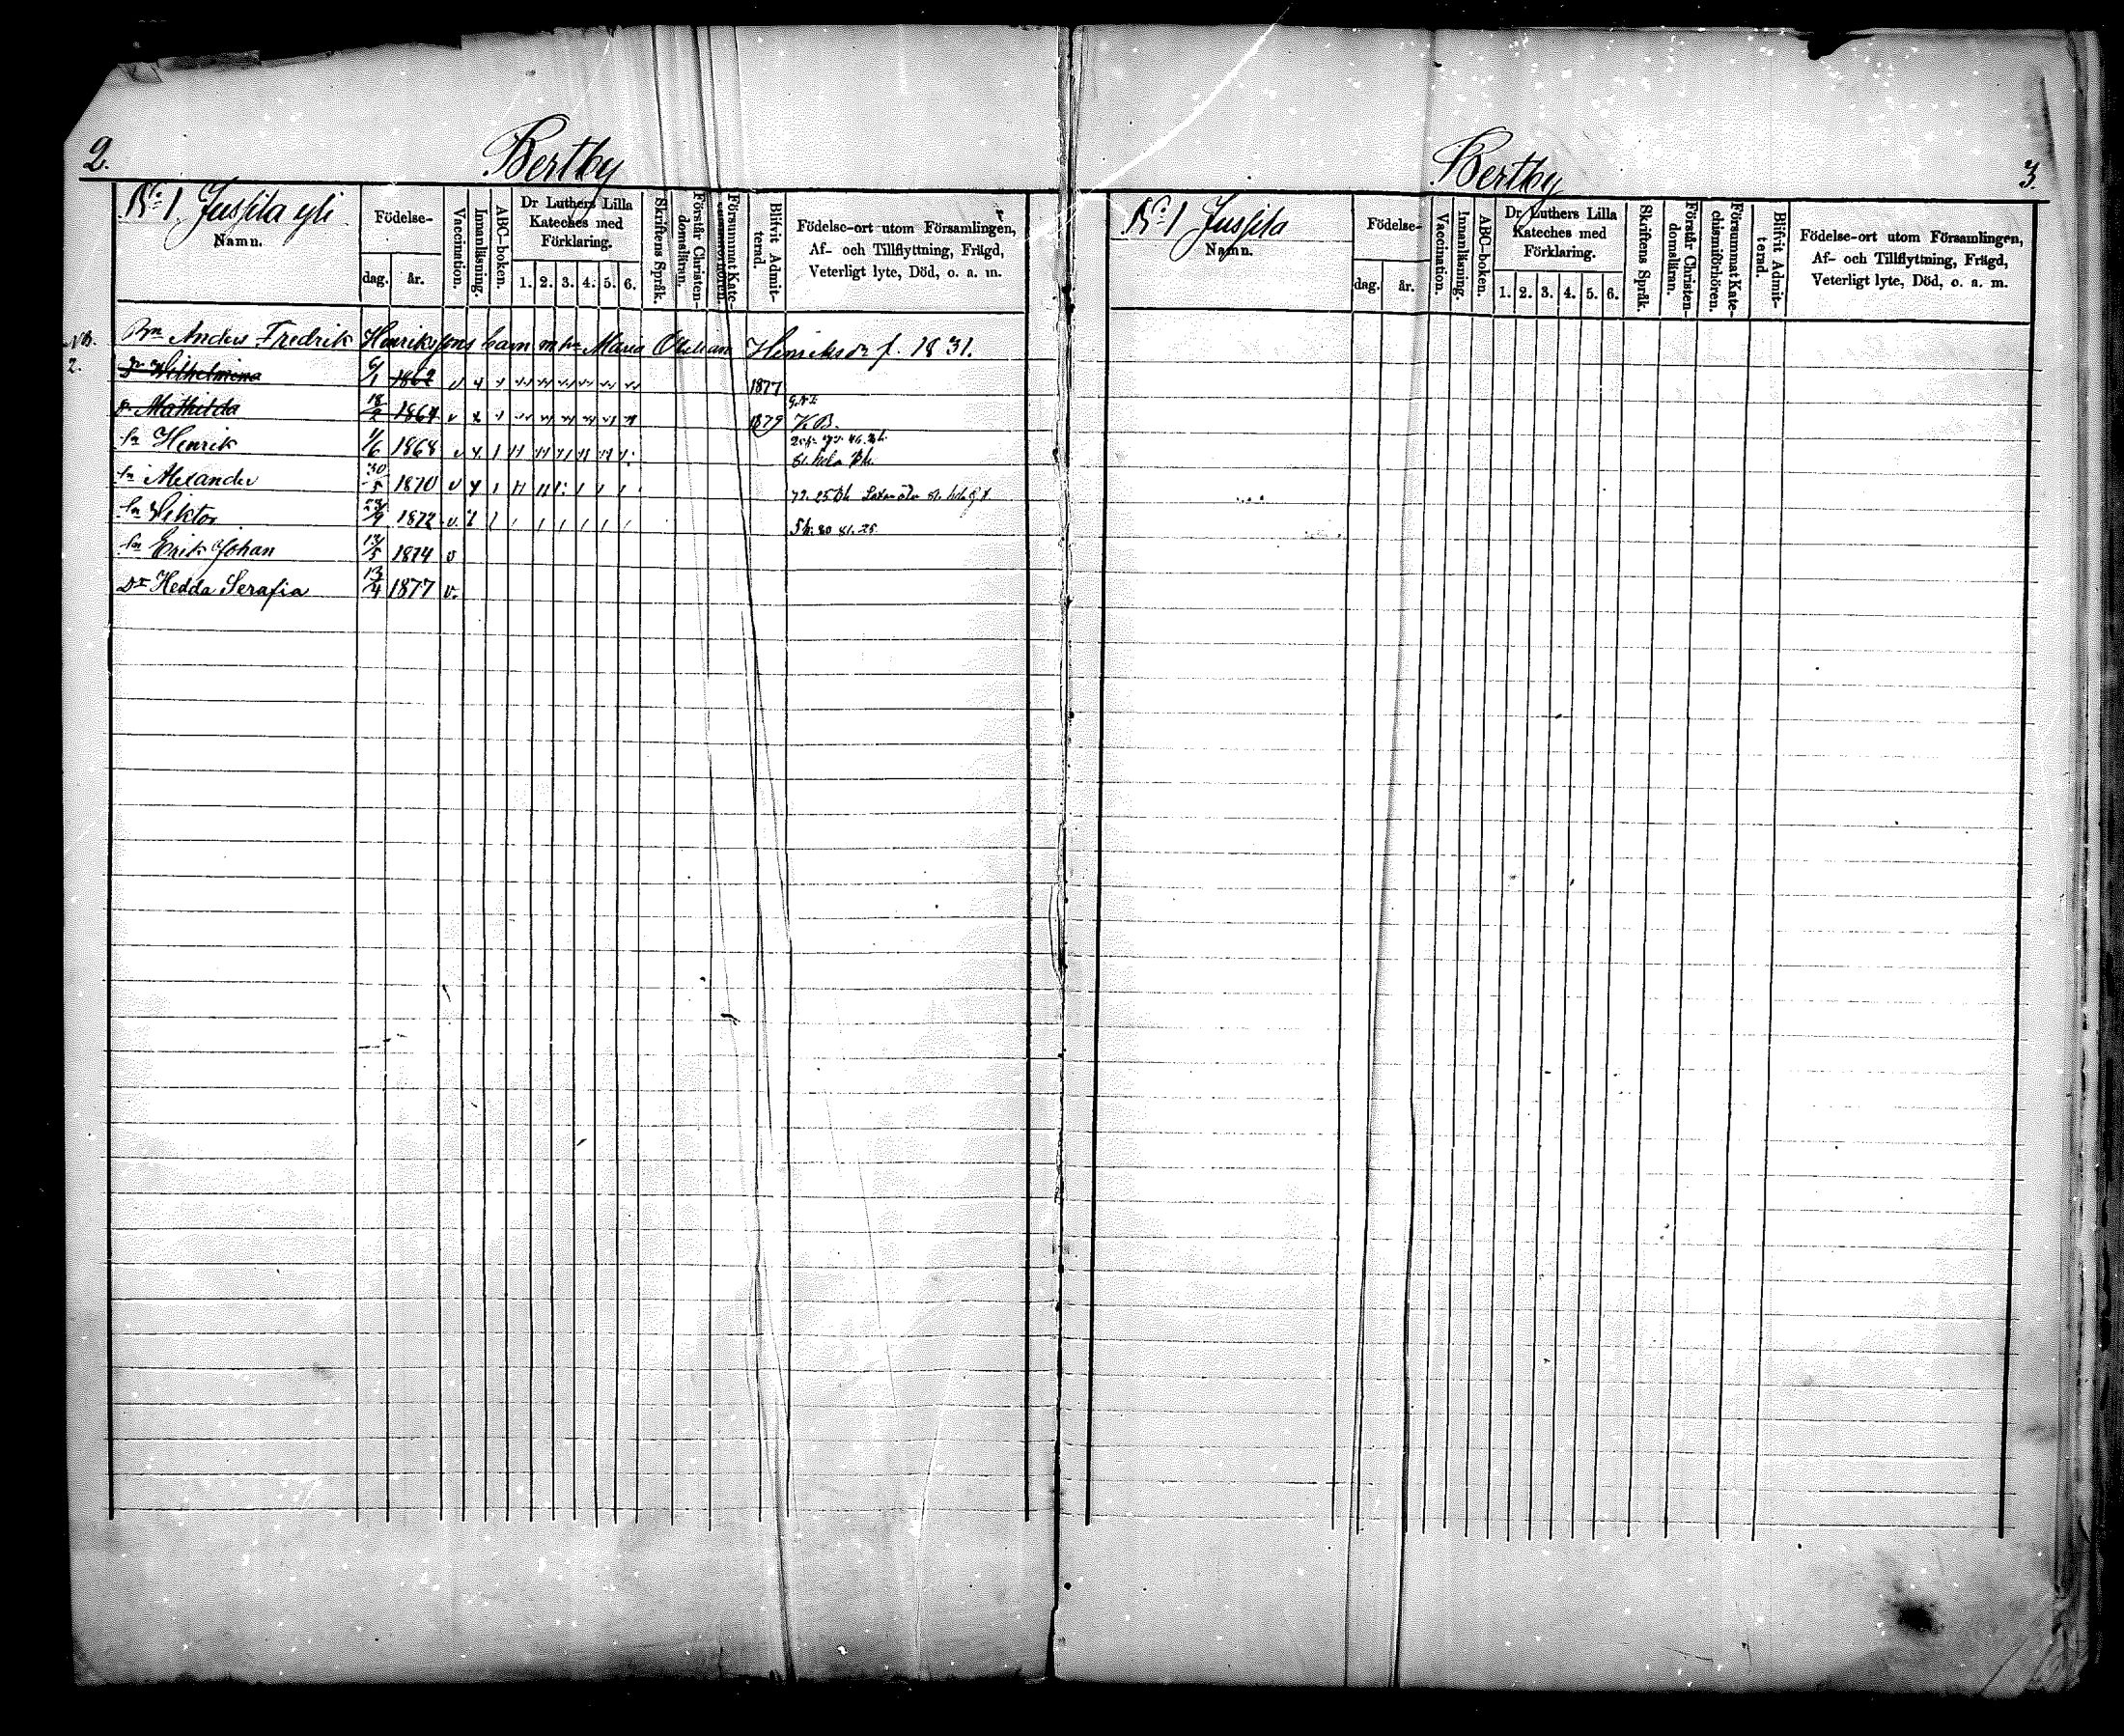 2.
Bertby
No 1 Jussila yli
Namn.
Födelse-
dag.
år.
Vaccination.
Innanläsning.
ABC-boken.
Dr Luthers Lilla
Kateches med
Förklaring.
1. 2. 3. 4. 5. 6.
Skriftens Språk.
Förstår Christen-
domsläran.
Försummat Kate-
chismiförhören.
Blifvit Admit-
terad.
Födelse-ort utom Församlingen,
Af- och Tillflyttning, Frägd,
Veterligt lyte, Död, o. a. m.
NB. Bn Anders Fredrik Henrikssons barn m hu Maria Henriksdr f. 1831.
2. Dr Wilhelmina 6/1 1862 v 1877
Dr Mathilda 18/2 1864 v 1879 K.B.
Sn Henrik 1/6 1868 v
Sn Alexander 30/5 1870 v
Sn Viktor 23/9 1872 v.
Sn Erik Johan 13/5 1874 v
Dr Hedda Serafia 13/4 1877 v.
Bertby
3.
No 1 Jussila
Namn.
Födelse-
dag.
år.
Vaccination.
Innanläsning.
ABC-boken.
Dr Luthers Lilla
Kateches med
Förklaring.
1. 2. 3. 4. 5. 6.
Skriftens Språk.
Förstår Christen-
domsläran.
Försummat Kate-
chismiförhören.
Blifvit Admit-
terad.
Födelse-ort utom Församlingen,
Af- och Tillflyttning, Frägd,
Veterligt lyte, Död, o. a. m.